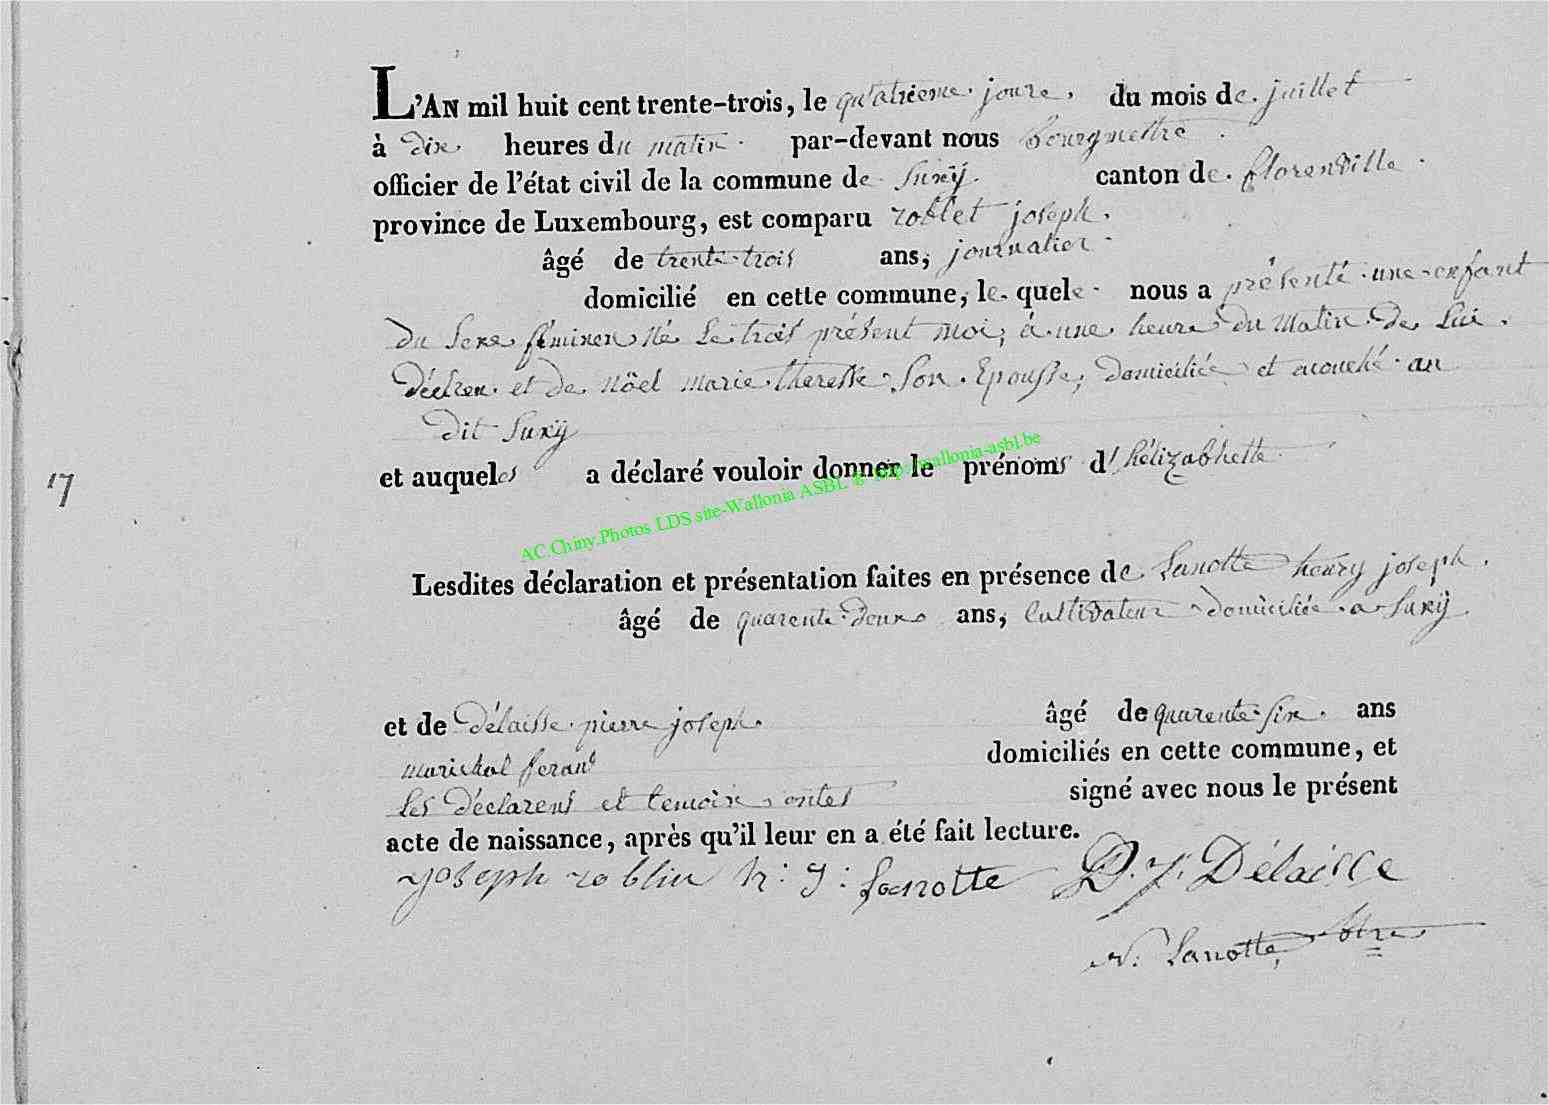 L'AN mil huit cent trente-trois, le quatrieme joure, du mois de juillet
à dix heures du matin par-devant nous bourgmettre
officier de l'état civil de la commune de Suxÿ canton de florenville
province de Luxembourg, est comparu roblet joseph.
âgé de trente-trois ans, journalier
domicilié en cette commune, le quele nous a présenté une enfant
du Sexe féminen né Le trois présent moi, à une heure du Matin De Lui
Déclren et de Nöel marie theresse Son Epousse, domiciliée et acouché au
dit Suxÿ
17 et auqueles a déclaré vouloir donner le prénoms d'hélizabhette
AC.Chiny.Photos LDS site-Wallonia ASBL © http://wallonia-asbl.be
Lesdites déclaration et présentation faites en présence de Lanotte henry joseph.
âgé de quarente-deux ans, Cultivateur domiciliée a Suxÿ
et de Délaisse pierre joseph. âgé de quarente-six ans
marichal feran domiciliés en cette commune, et
Les Déclarens et temoin ontes signé avec nous le présent
acte de naissance, après qu'il leur en a été fait lecture.
joseph roblin h: J: Lanotte P. J. Délaisse
N. Lanotte, btre